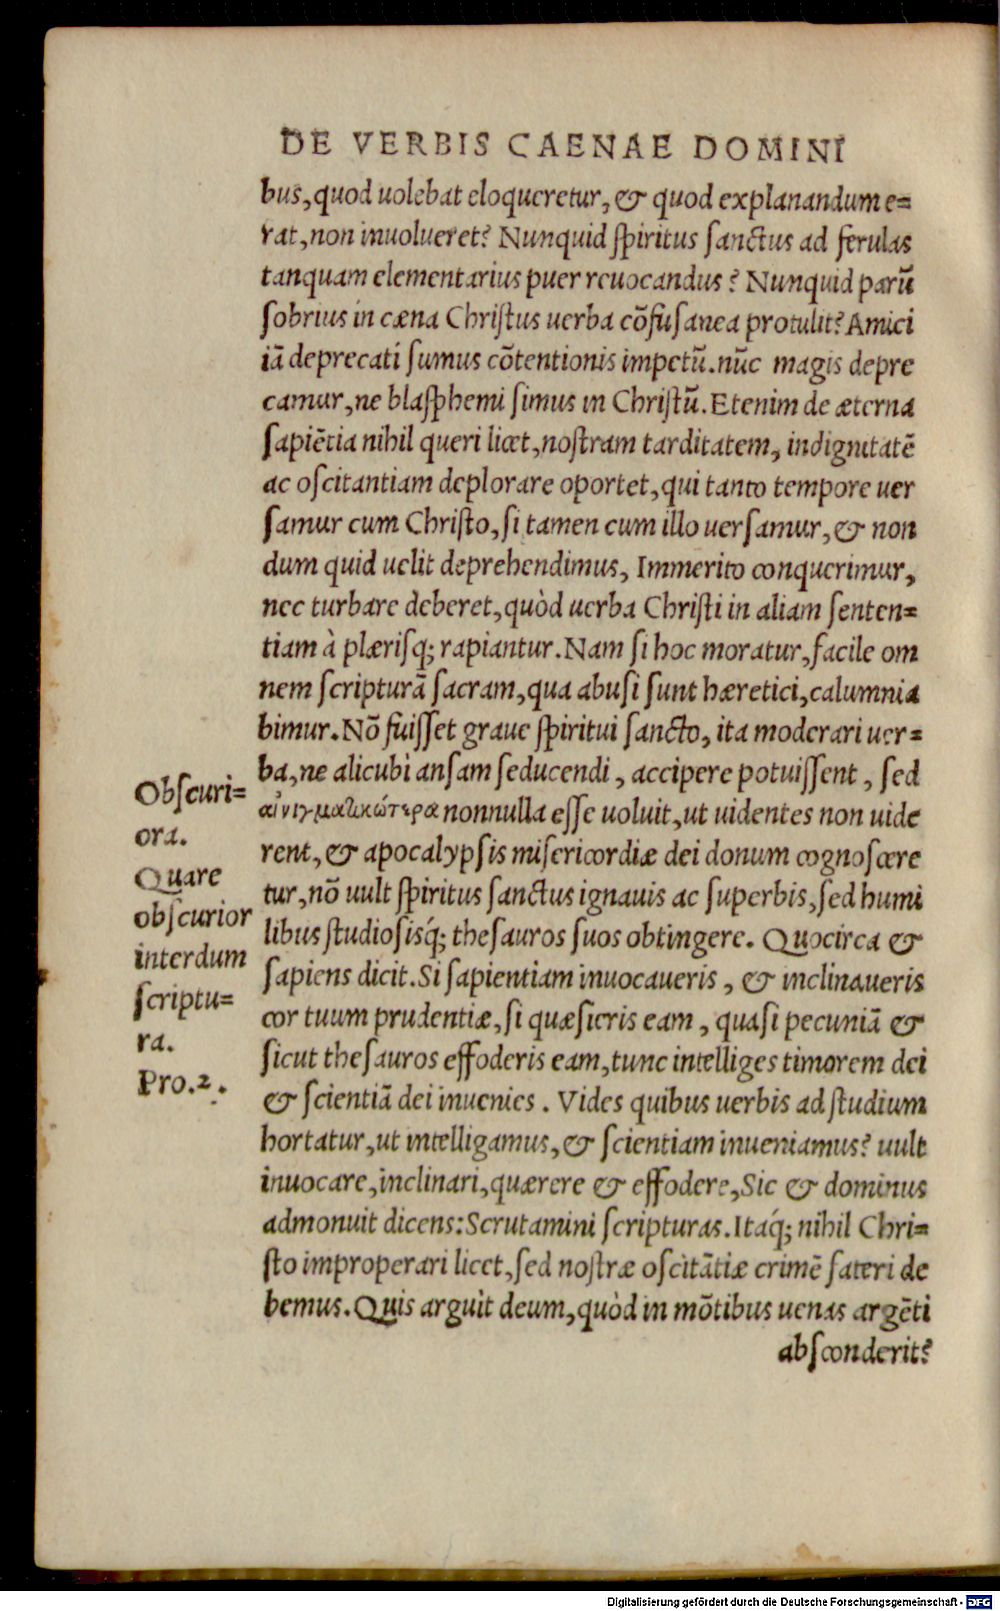 DE VERBIS CAENAE DOMINI
bus, quod uolebat eloqueretur, & quod explanandum e=
rat, non inuolueret? Nunquid ſpiritus ſanctus ad ferulas
tanquam elementarius puer reuocandus? Nunquid parū
ſobrius in cæna Chriſtus uerba cōfuſanea protulit? Amici
iā deprecati ſumus cōtentionis impetū. nūc magis depre
camur, ne blaſphemi ſimus in Chriſtū. Etenim de æterna
ſapiētia nihil queri licet, noſtram tarditatem, indignitatē
ac oſcitantiam deplorare oportet, qui tanto tempore uer
ſamur cum Chriſto, ſi tamen cum illo uerſamur, & non
dum quid uelit deprehendimus, Immerito conquerimur,
nec turbare deberet, quòd uerba Chriſti in aliam ſenten=
tiam à plæriſq; rapiantur. Nam ſi hoc moratur, facile om
nem ſcripturā ſacram, qua abuſi ſunt hæretici, calumnia
bimur. Nō fuiſſet graue ſpiritui ſancto, ita moderari uer=
ba, ne alicubi anſam ſeducendi, accipere potuiſſent, ſed
αἰνιγματικώτερα nonnulla eſſe uoluit, ut uidentes non uide
rent, & apocalypſis miſericordiæ dei donum cognoſcere
tur, nō uult ſpiritus ſanctus ignauis ac ſuperbis, ſed humi
libus ſtudioſisq́; theſauros ſuos obtingere. Quocirca &
ſapiens dicit. Si ſapientiam inuocaueris, & inclinaueris
cor tuum prudentiæ, ſi quæſieris eam, quaſi pecuniā &
ſicut theſauros effoderis eam, tunc intelliges timorem dei
& ſcientiā dei inuenies. Vides quibus uerbis ad ſtudium
hortatur, ut intelligamus, & ſcientiam inueniamus? uult
inuocare, inclinari, quærere & effodere, Sic & dominus
admonuit dicens: Scrutamini ſcripturas. Itaq́; nihil Chri=
ſto improperari licet, ſed noſtræ oſcitātiæ crimē fateri de
bemus. Quis arguit deum, quòd in mōtibus uenas argēti
abſconderit?
Obſcuri=
ora.
Quare
obſcurior
interdum
ſcriptu=
ra.
Pro. 2.
Digitalisierung gefördert durch die Deutsche Forschungsgemeinschaft - DFG